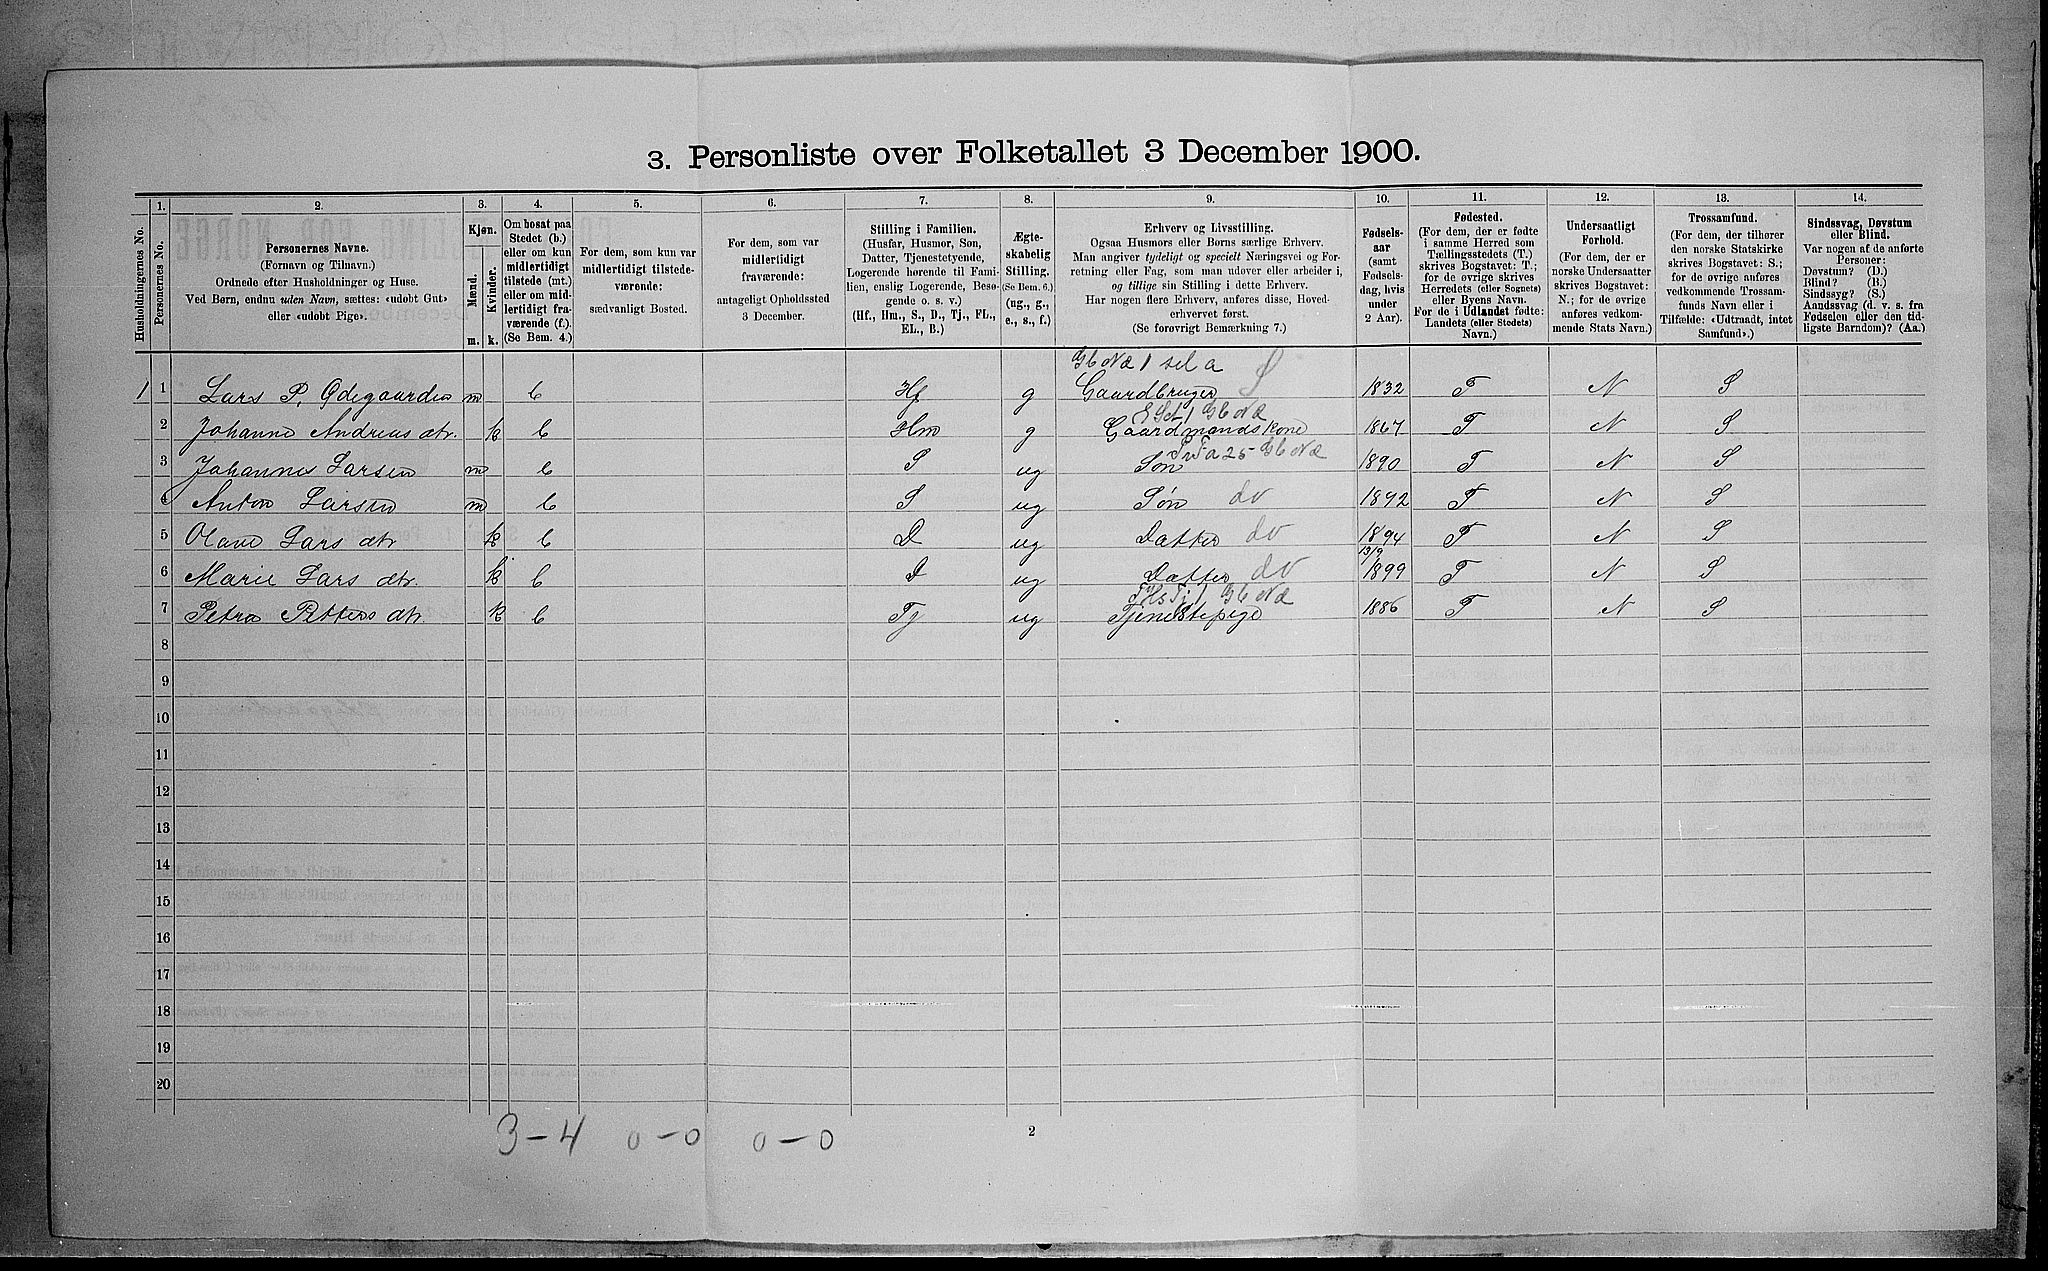 3. Personliste over Folketallet 3 December 1900.
Husholdningernes No.
1. Personernes No.
2. Personernes Navne.
(Fornavn og Tilnavn.)
Ordnede efter Husholdninger og Huse.
Ved Børn, endnu uden Navn, sættes: «udøbt Gut»
eller «udøbt Pige».
3. Kjøn.
Mænd. m.
Kvinder. k.
4. Om bosat paa
Stedet (b.)
eller om kun
midlertidigt
tilstede (mt.)
eller om mid-
lertidigt fra-
værende (f.).
(Se Bem. 4.)
5. For dem, som kun var
midlertidigt tilstede-
værende:
sædvanligt Bosted.
6. For dem, som var
midlertidigt
fraværende:
antageligt Opholdssted
3 December.
7. Stilling i Familien.
(Husfar, Husmor, Søn,
Datter, Tjenestetyende,
Logerende hørende til Fami-
lien, enslig Logerende, Besø-
gende o. s. v.)
(Hf., Hm., S., D., Tj., FL.,
EL., B.)
8. Ægte-
skabelig
Stilling.
(Se Bem. 6.)
(ug., g.,
e., s., f.)
9. Erhverv og Livsstilling.
Ogsaa Husmors eller Børns særlige Erhverv.
Man angiver tydeligt og specielt Næringsvei og For-
retning eller Fag, som man udøver eller arbeider i,
og tillige sin Stilling i dette Erhverv.
Har nogen flere Erhverv, anføres disse, Hoved-
erhvervet først.
(Se forøvrigt Bemærkning 7.)
10. Fødsels-
aar
(samt
Fødsels-
dag, hvis
under
2 Aar).
11. Fødested.
(For dem, der er fødte
i samme Herred som
Tællingsstedets (T.)
skrives Bogstavet: T.;
for de øvrige skrives
Herredets (eller Sognets)
eller Byens Navn.
For de i Udlandet fødte:
Landets (eller Stedets)
Navn.)
12. Undersaatligt
Forhold.
(For dem, der er
norske Undersaatter
skrives Bogstavet:
N.; for de øvrige
anføres vedkom-
mende Stats Navn.)
13. Trossamfund.
(For dem, der tilhører
den norske Statskirke
skrives Bogstavet: S.;
for de øvrige anføres
vedkommende Trossam-
funds Navn eller i
Tilfælde: «Udtraadt, intet
Samfund».)
14. Sindssvag, Døvstum
eller Blind.
Var nogen af de anførte
Personer:
Døvstum? (D.)
Blind? (B.)
Sindssyg? (S.)
Aandssvag (d. v. s. fra
Fødselen eller den tid-
ligste Barndom)? (Aa.)
Gb Næ 1 sel a
1 1 Lars P. Ødegaarden m b Hf g Gaardbruger S 1832 T N S
Gb Næ
2 Johanne Andreas dtr. k b Hm g Gaardmandskone 1867 T N S
Fa 25 Gb Næ
3 Johannes Larsen m b S ug Søn 1890 T N S
4 Anton Larsen m b S ug Søn do 1892 T N S
5 Olave Lars dtr k b D ug Datter do 1894 T N S
13/9
6 Marie Lars dtr. k b D ug Datter do 1899 T N S
Hs Tj 1 Gb Næ
7 Petra Petters dtr. k b Tj ug Tjenestepige 1886 T N S
8
9
10
11
12
13
14
15
16
17
18
19
20
3-4 0-0 0-0
2